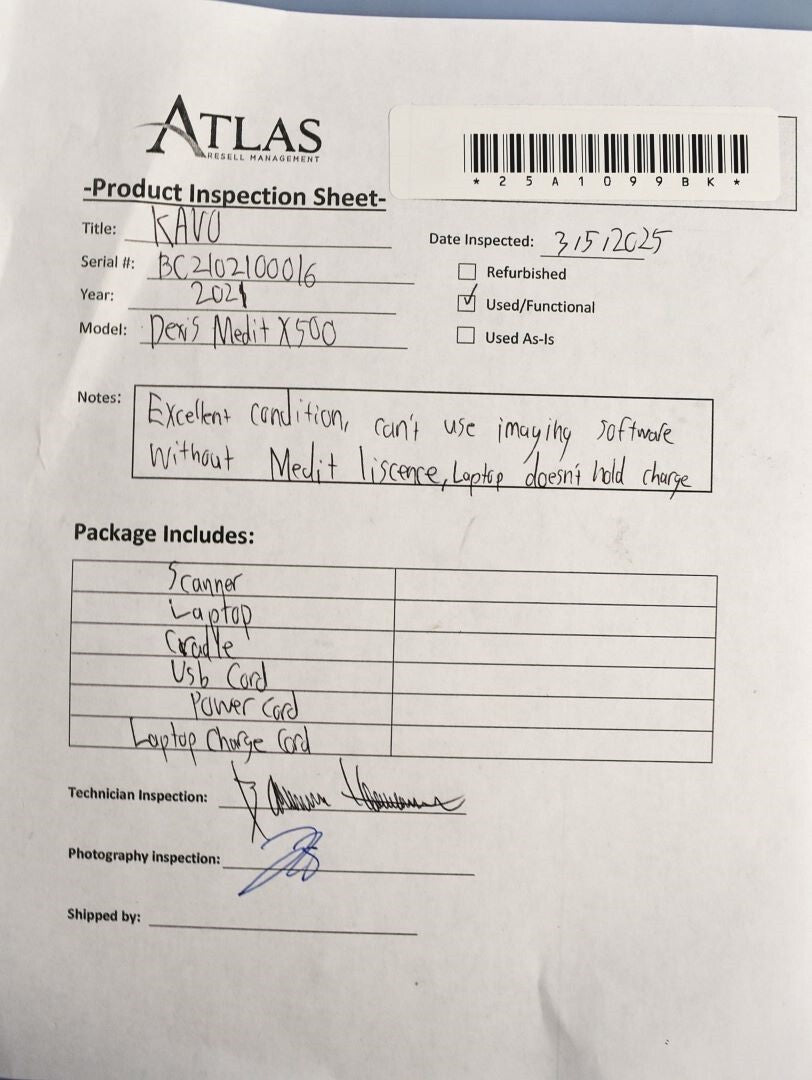 ATLAS
RESELL MANAGEMENT
*25A1099BK*
-Product Inspection Sheet-
Title: KAVO
Date Inspected: 3/5/2025
Serial #: BC2102100016
Refurbished
Year: 2021
Used/Functional
Model: Dexis Medit X500
Used As-Is
Notes: Excellent condition, can't use imaging software
Without Medit liscence, Laptop doesn't hold charge
Package Includes:
Scanner
Laptop
Cradle
Usb Cord
Power Cord
Laptop Charge Cord
Technician Inspection:
Photography inspection:
Shipped by: